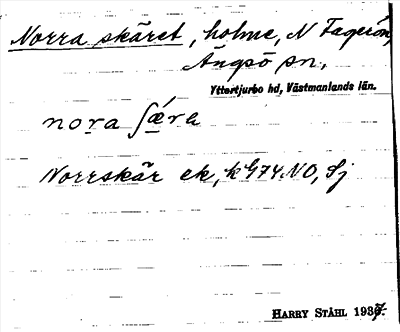 Norra skäret, holme, N Fagerön,
Ängsö sn,
Yttertjurbo hd, Västmanlands län.
nora ʃǽre
Norrskär ek, k 974 NO, Sj
HARRY STÅHL 1937.